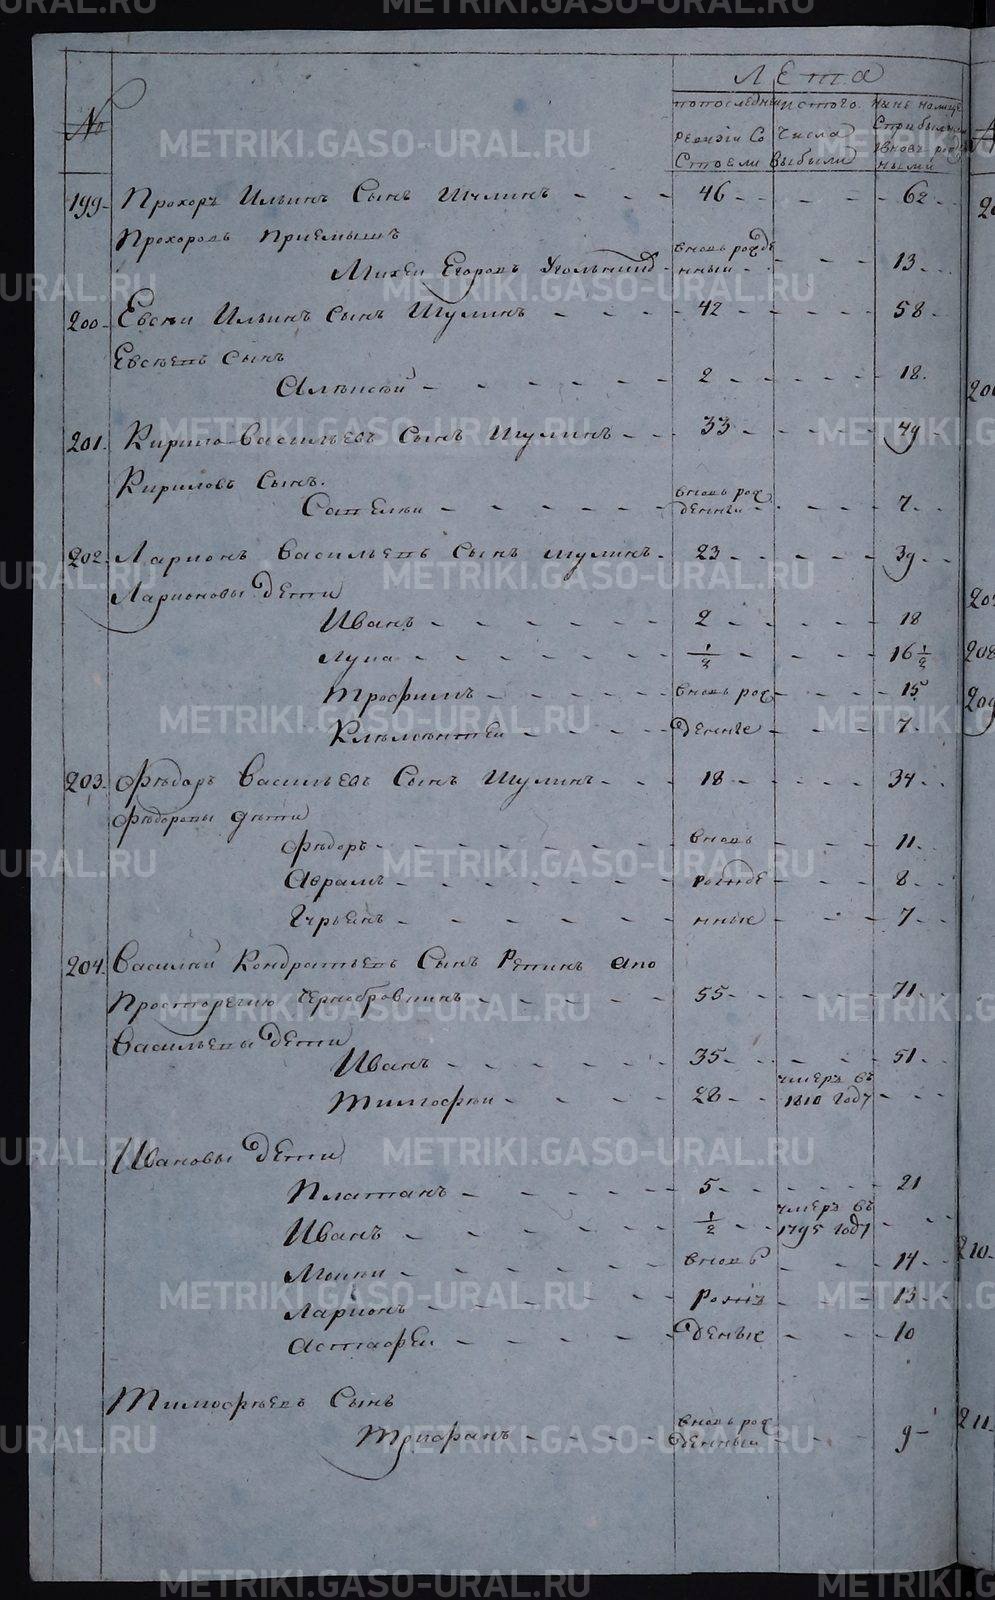 METRIKI.GASO-URAL.RU
Лета
№
попоследней
ревизiи Со
Стоели
истого.
числа
выбыли
ныне налице
Сприбылыми
вновь рож
ными
199. Прохоръ Ильинъ Сынъ Шулинъ - - - 46 - - - - 62
Прохоровъ Приемышъ
Михеи Егоровъ Угольниковъ - вновь рожде нныи - - - - 13
200. Евсѣи Ильинъ сынъ Шулинъ - - - 42 - - - - 58
Евсѣевъ Сынъ
Алѣксѣй - - - 2 - - - - 18
201. Кирило Васильевъ Сынъ Шулинъ - - - 33 - - - - 49
Кириловъ Сынъ.
Савелеи - - - вновь рож денныи - - - 7
202. Ларионъ Васильевъ Сынъ Шулинъ - 23 - - - - 39
Ларионовы Дети
Иванъ - - - 2 - - - - 18
Лупа - - - 1/2 - - - - 16 1/2
Трофимъ - - - вновь рож - - - 15
Клѣментеи - - - денные - - - 7
203. Фѣдоръ Васильевъ Сынъ Шулинъ - - - 18 - - - - 34
Фѣдоровы дѣти
Фѣдоръ - - - вновь - - - 11
Аврамъ - - - рожде - - - 8
Гурьянъ - - - нные - - - 7
204. Василий Кондратьевъ Сынъ Репинъ апо
Просторечию Чернобровкинъ - - - 55 - - - - 71
Васильевы Дети
Иванъ - - - 35 - - - - 51
Тимофѣи - - - 28 - - умеръ въ 1810 году - - -
Ивановы Дети
Платанъ - - - 5 - - - - 21
Иванъ - - - 1/2 - - умеръ въ 1795 году - - -
Мокеи - - - вновь - - - 14
Ларионъ - - - рож - - - 13
Астафеи - - - деные - - - 10
Тимофѣевъ Сынъ
Трифанъ - - - вновь рож денныи - - - 9
210.
211.